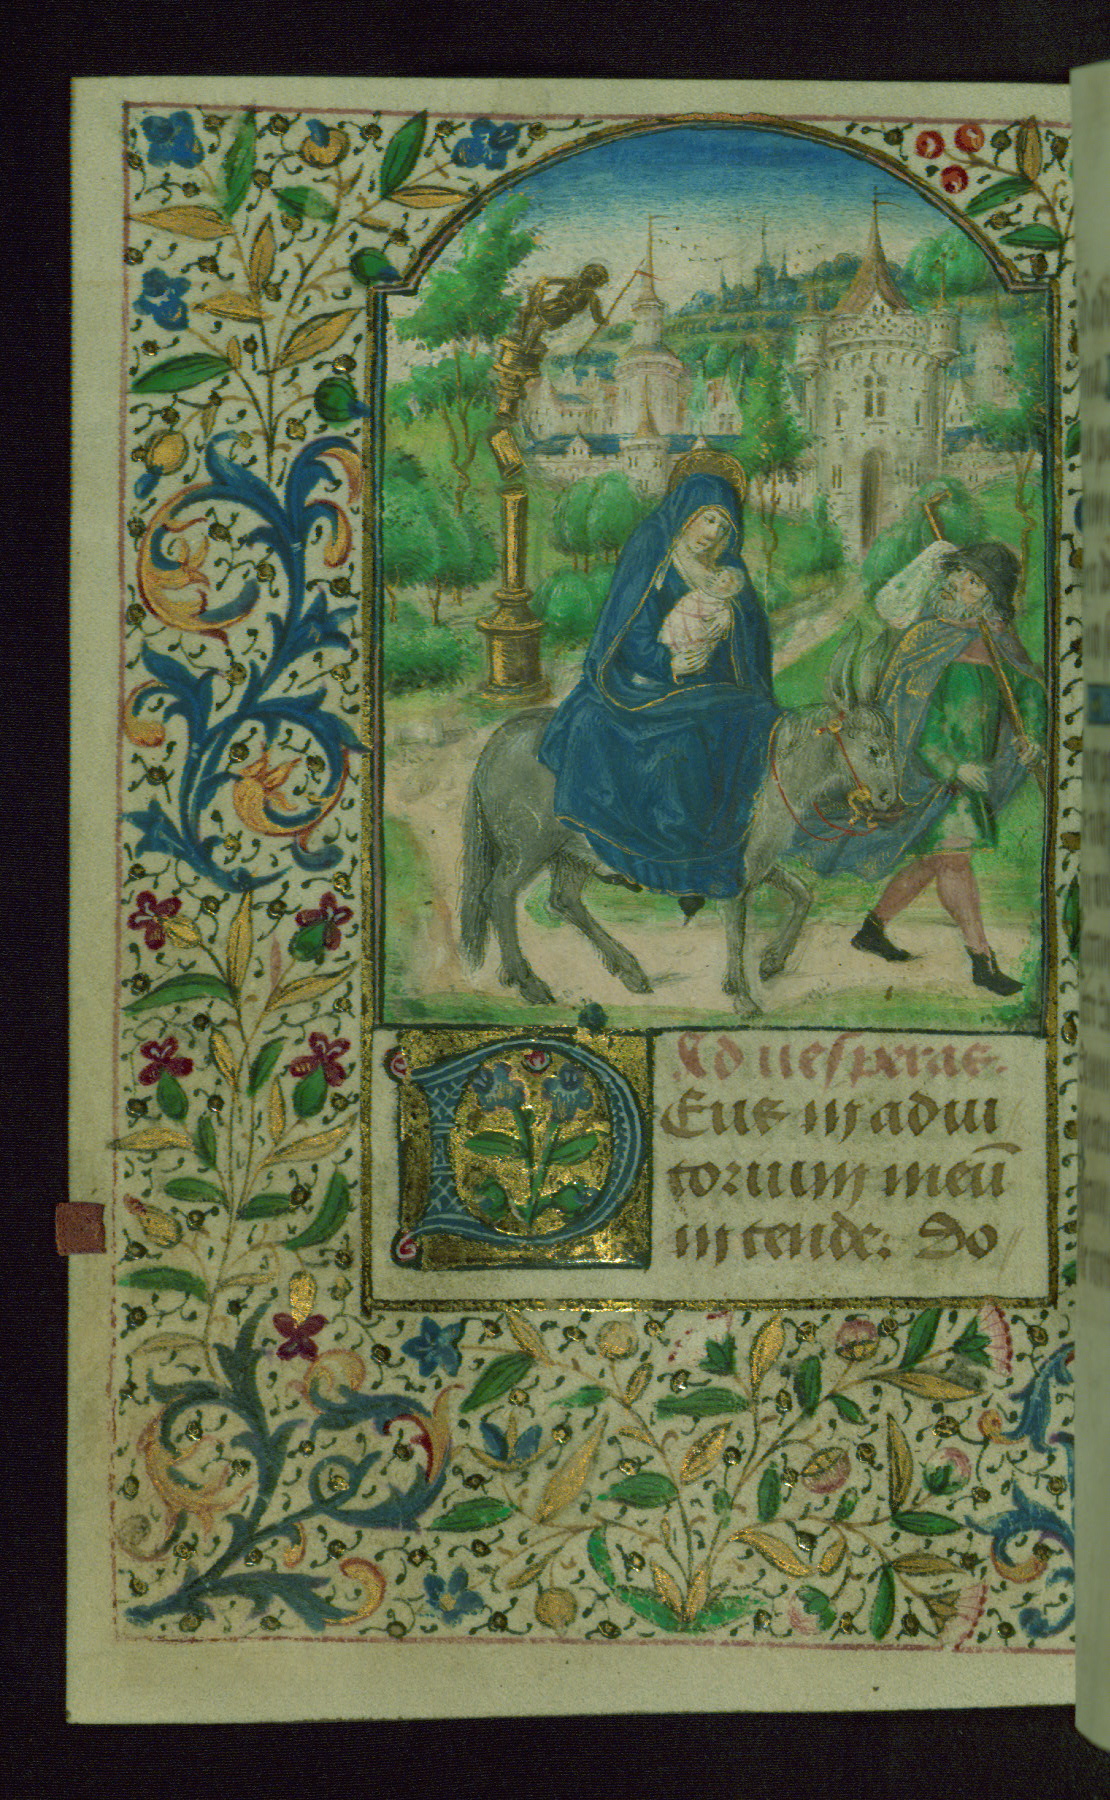 Ad uesperas.
Deus in adiu
torium meū
intende: Do